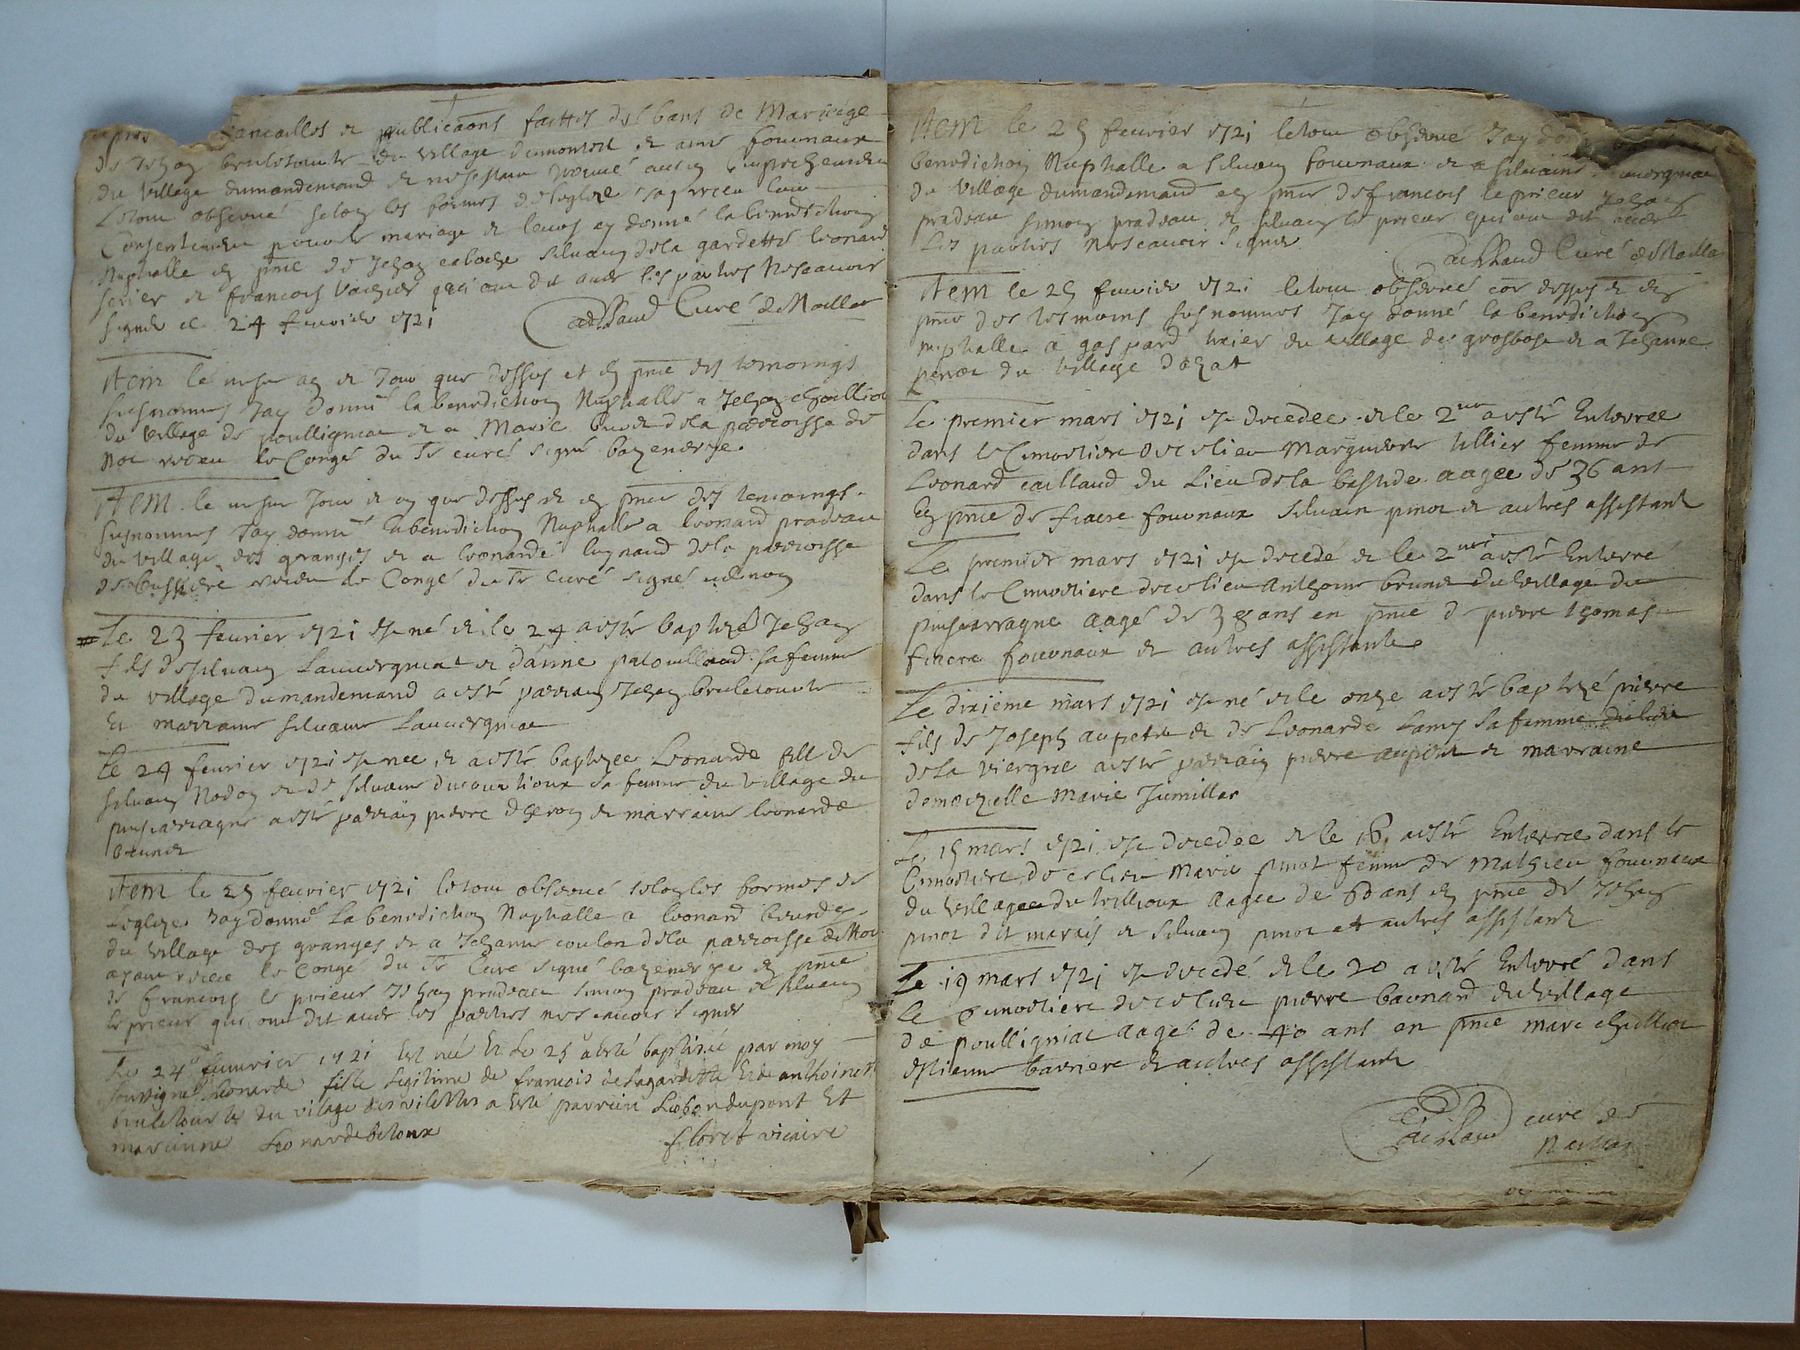 publicaōns faittes des bans de Mariage
de Jehan du village et anne fournaux
du village dumandement et
Letout observé selon les formes de leglize
Consentement pour le mariage et donné la benediction
Nuphalle en pñce de Jehan silvain dela gardette leonard
et francois qui ont dit avec les parties Nescavoir
signer ce 24 fevrier 1721 Curé de Naillac
Item le mesme an et Jour que dessus et en pñce des temoings
susnommes Jay donné la benediction Nuphalle a Jehan
du village de poulligniac et a Marie dela parroisse de
Not receu le Congé du Sr curé signé bazenerye
Item le mesme Jour et an que dessus et en pñce des temoings
susnommes Jay donné la benediction Nuphalle a leonard pradeau
du village des granges et a leonarde lugnaud dela parroisse
de bussiere receu le Congé du Sr Curé signé
Le 23 fevrier 1721 est né et le 24 a esté baptizé Jehan
fils de silvain Lauvergniat et danne patouillaud sa femme
du village dumandement a esté parrain Jehan bruletourte
Et marraine silvaine Lauvergniat
Le 24 fevrier 1721 est nee et a esté baptizee Leonarde fille de
silvain Nadon et de silvaine ducourtioux sa femme du village du
puycarragne a esté parrain pierre et marraine leonarde
brunet
Item le 25 fevrier 1721 letout observé selon les formes de
Leglize Jay donné La benediction Nuphalle a leonard
du village des granges et a Jehanne coulon dela parroisse de Not
ayant receu le Congé du Sr Curé signé bazenerye en pñce
de francois le prieur Jehan pradeau simon pradeau et silvain
le prieur qui ont dit avec les parties nescavoir signer
Le 24 feuvrier 1721 Est née Et Le 25 a esté baptisée par moy
soubsigné Leonarde fille legitime de francois de Lagardette Et de anthoinette
bruletourte du vilage des vilettes a esté parrain dupont Et
marainne Leonarde betoux floret vicaire
Item le 25 fevrier 1721 letout observé Jay
benediction Nuphalle a silvain fournaux et a silvaine Lauvergniat
du village dumandement en pñce de francois le prieur Jehan
pradeau simon pradeau et silvain le prieur qui ont dit avec
Les parties Nescavoir signer Curé de Naillac
Item le 25 fevrier 1721 letout observé cōe dessus et en
pñce des tesmoins susnommes Jay donné la benediction
nuphalle a gaspard du village de grosbost et a Jehanne
penot du village
Le premier mars 1721 est decedee et le 2me a esté Enterree
dans le Cimetiere de ce lieu Margueritte tillier femme de
Leonard caillaud du Lieu de la bastide aagee de 36 ans
En pñce de fiacre fournaux silvain pinot et autres assistants
Le premier mars 1721 est decedé et le 2me a esté Enterré
dans le Cimetiere de ce lieu Anthoine brunet du village du
puycarragne aagé de 38 ans en pñce de pierre thomas
fiacre fournaux et autres assistants
Le dixieme mars 1721 est né et le onze a esté baptizé pierre
fils de Joseph aupetit et de Leonarde Lamy sa femme
dela viergne a esté parrain pierre aupetit et marraine
demoizelle Marie Jumillac
Le 15 mars 1721 est decedee et le 16 a esté Enterree dans le
Cimetiere de ce lieu Marie pinot femme de Mathieu fournaux
du village du tillioux aagee de 60 ans en pñce de Jehan
pinot dit marais et silvain pinot et autres assistants
Le 19 mars 1721 est decedé et le 20 a esté Enterré dans
Le Cimetiere de ce lieu pierre baunard du village
de poulligniat aagé de 40 ans en pñce marc
estienne barriere et autres assistants
curé de
Naillac